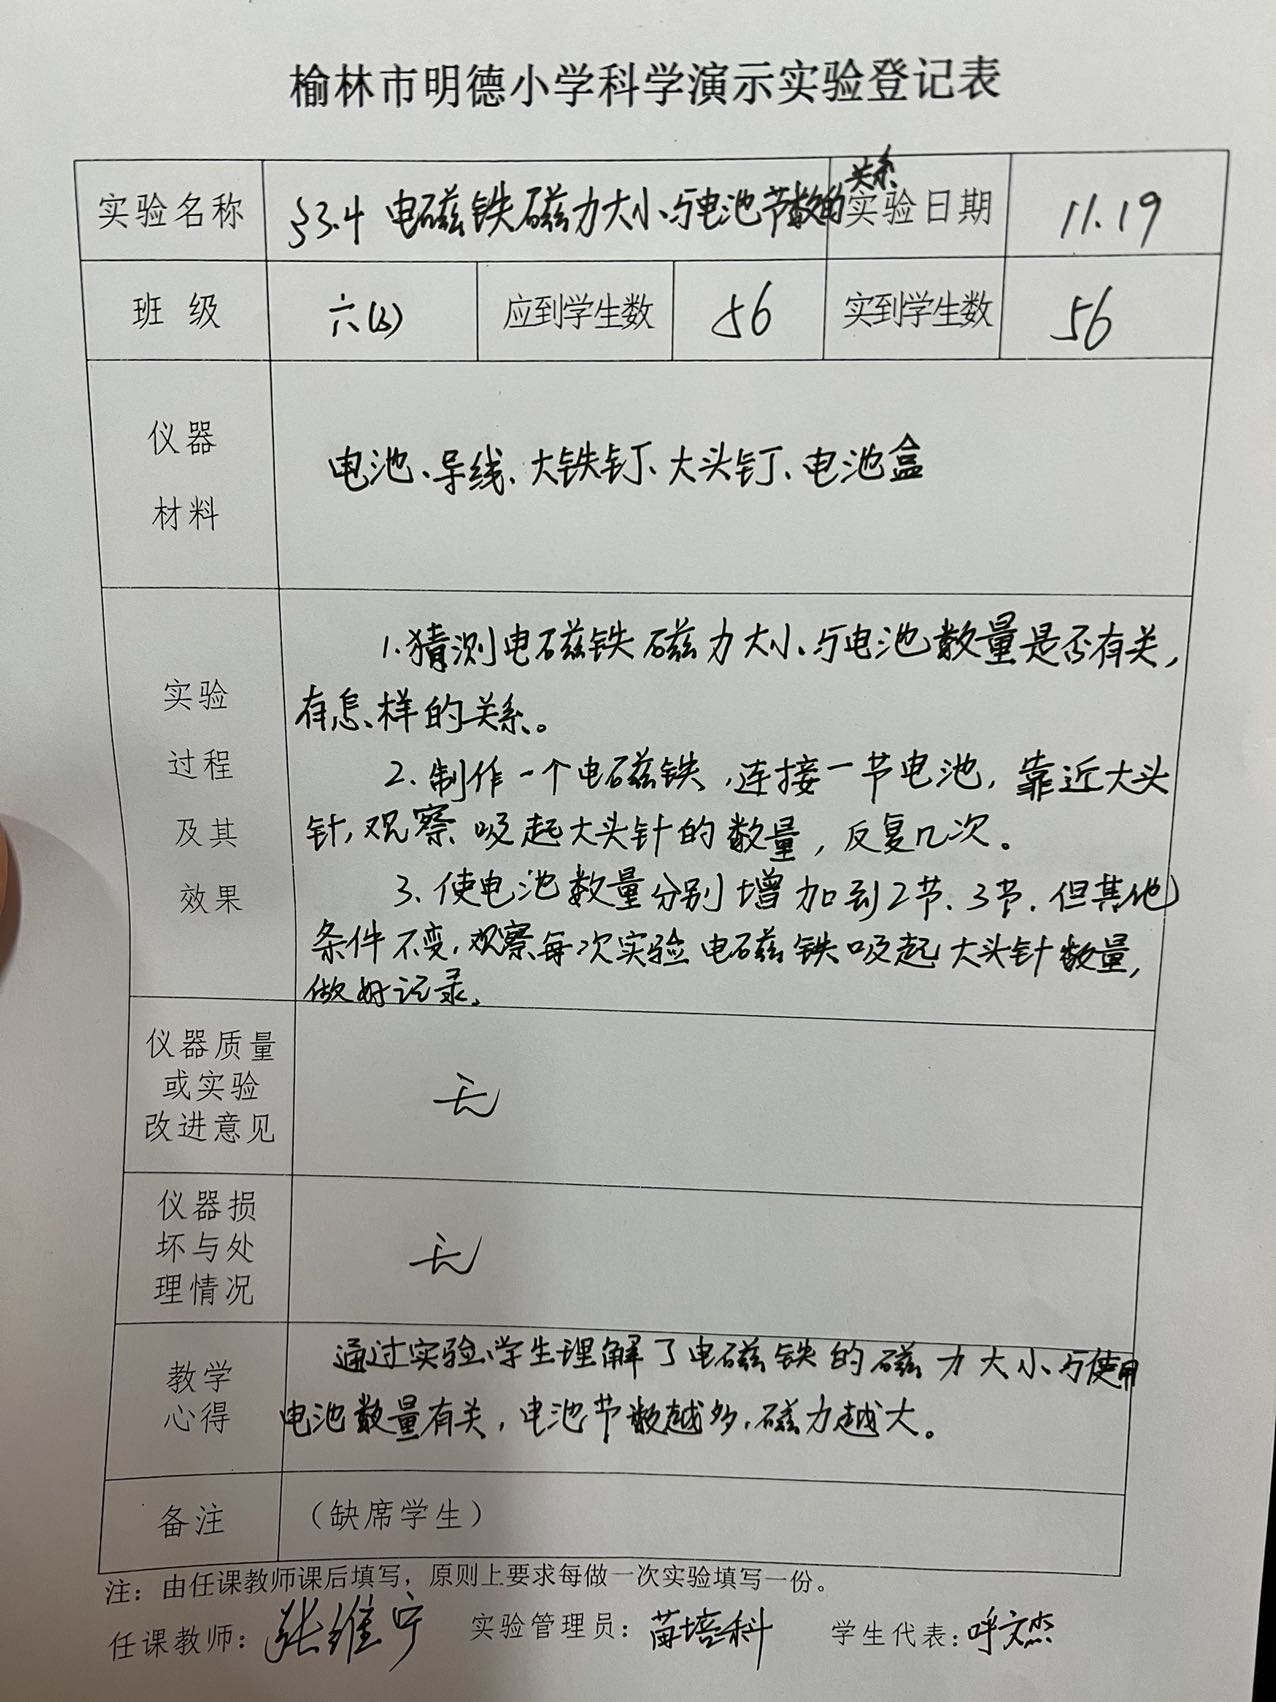 榆林市明德小学科学演示实验登记表
实验名称 §3.4 电磁铁磁力大小与电池节数的关系 实验日期 11.19
班级 六 应到学生数 56 实到学生数 56
仪器
材料
电池、导线、大铁钉、大头钉、电池盒
实验
过程
及其
效果
1.猜测电磁铁磁力大小与电池数量是否有关,
有怎样的关系。
2.制作一个电磁铁,连接一节电池,靠近大头
针,观察吸起大头针的数量,反复几次。
3.使电池数量分别增加到2节、3节,但其他
条件不变,观察每次实验电磁铁吸起大头针数量,
做好记录。
仪器质量
或实验
改进意见
无
仪器损
坏与处
理情况
无
教学
心得
通过实验,学生理解了电磁铁的磁力大小与使用
电池数量有关,电池节数越多,磁力越大。
备注 (缺席学生)
注:由任课教师课后填写,原则上要求每做一次实验填写一份。
任课教师:张维宁 实验管理员:苗培科 学生代表:呼文杰